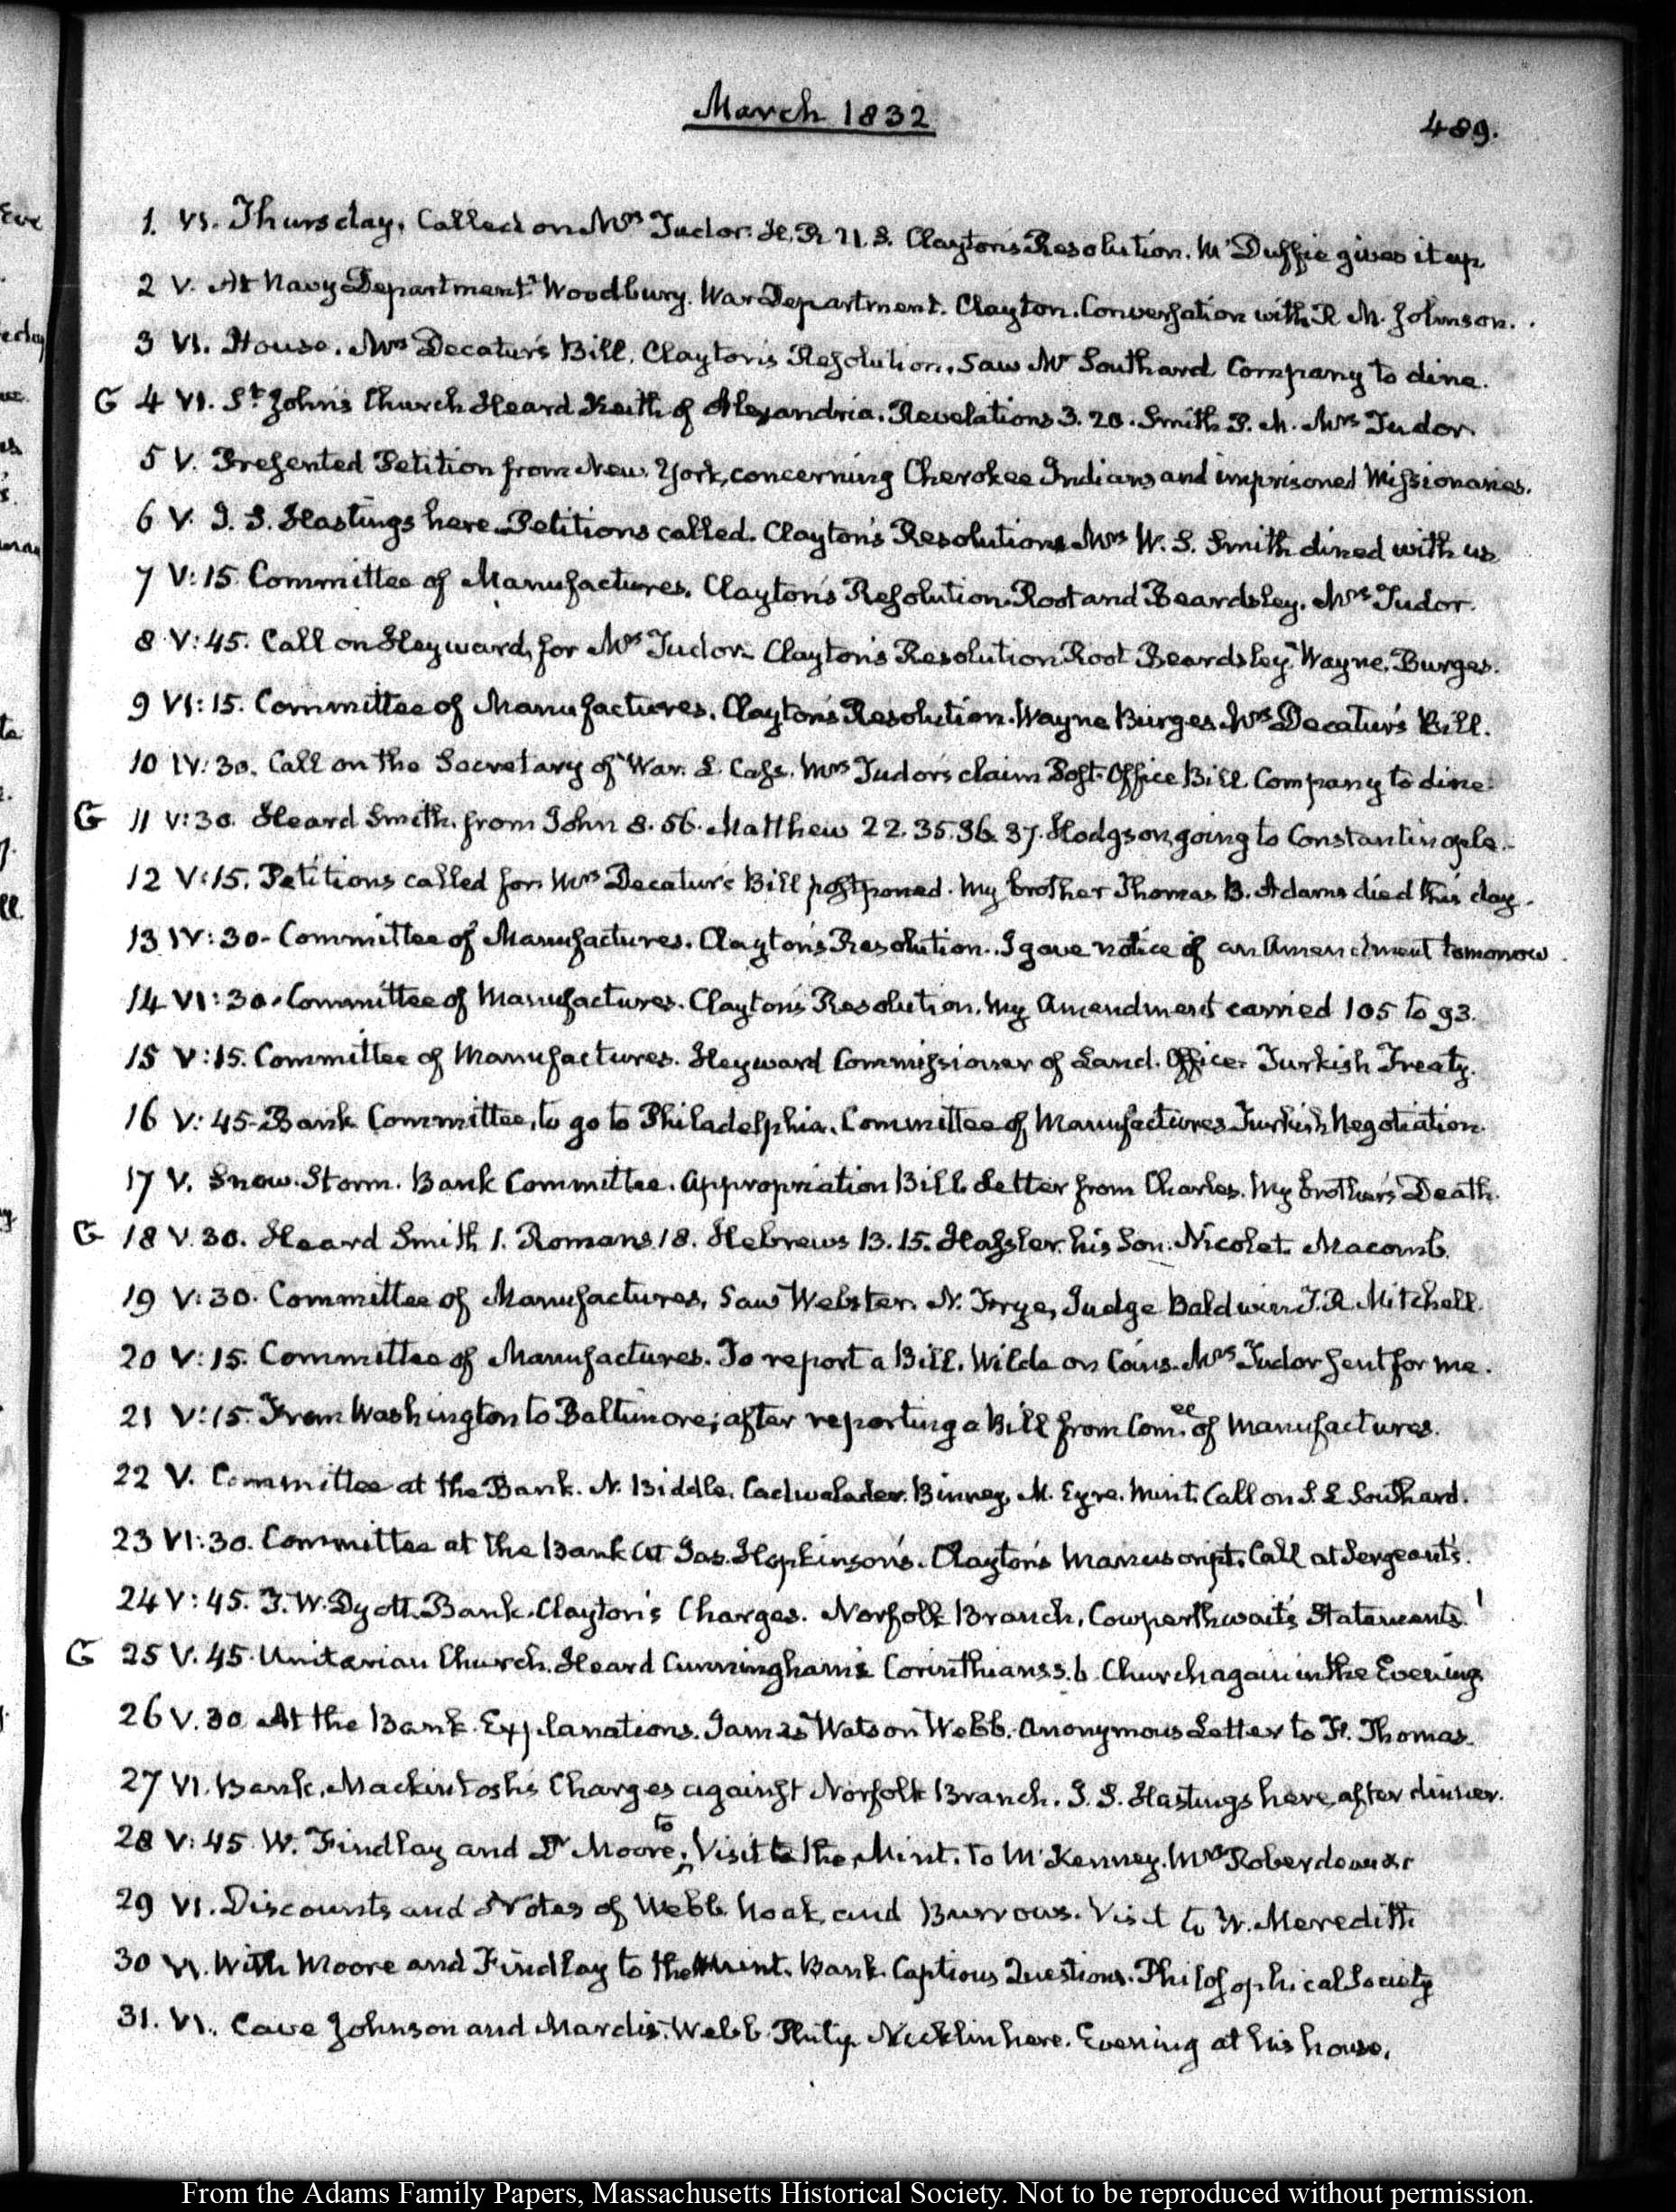 March 1832
489.
1. VI. Thursday. Called on Mrs Tudor. H. R. U. S. Clayton's Resolution. McDuffie gives it up
2 V. At Navy Department. Woodbury. War Department. Clayton. Conversation with R M. Johnson.
3 VI. House. Mrs Decatur's Bill. Clayton's Resolution. Saw Mr Southard Company to dine.
G 4 VI. St John's Church Heard Keith of Alexandria. Revelations 3. 20. Smith P. M. Mrs Tudor
5 V. Presented Petition from New York, concerning Cherokee Indians and imprisoned Missionaries.
6 V. J. S. Hastings here Petitions called. Clayton's Resolution Mrs W. S. Smith dined with us
7 V:15 Committee of Manufactures. Clayton's Resolution. Root and Beardsley. Mrs Tudor.
8 V:45. Call on Heyward, for Mrs Tudor. Clayton's Resolution Root Beardsley Wayne. Burges.
9 VI:15. Committee of Manufactures. Clayton's Resolution. Wayne Burges. Mrs Decatur's Bill.
10 IV:30. Call on the Secretary of War. L. Cass. Mrs Tudor's claim Post-Office Bill Company to dine
G 11 V:30. Heard Smith. from John 8. 56. Matthew 22. 35. 36. 37. Hodgson, going to Constantinople.
12 V:15. Petitions called for. Mrs Decatur's Bill postponed. My brother Thomas B. Adams died this day.
13 IV:30. Committee of Manufactures. Clayton's Resolution. I gave notice of an Amendment tomorrow.
14 VI:30. Committee of Manufactures. Clayton's Resolution. My Amendment carried 105 to 93.
15 V:15. Committee of Manufactures. Heyward Commissioner of Land. Office. Turkish Treaty.
16 V:45 Bank Committee, to go to Philadelphia. Committee of Manufactures Turkish Negotiation.
17 V. Snow. Storm. Bank Committee. Appropriation Bill. Letter from Charles. My brother's Death.
G 18 V.30. Heard Smith 1. Romans 18. Hebrews 13. 15. Hassler. his Son. Nicolet. Macomb.
19 V:30. Committee of Manufactures. Saw Webster. N. Frye, Judge Baldwin T. R. Mitchell.
20 V:15. Committee of Manufactures. To report a Bill. Wilde on Coins. Mrs Tudor sent for me.
21 V:15. From Washington to Baltimore; after reporting a Bill from Com.ee of Manufactures.
22 V. Committee at the Bank. N. Biddle. Cadwalader. Binney, M. Eyre. Mint. Call on S. L Southard.
23 VI:30. Committee at the Bank at Jos. Hopkinson's. Clayton's Manuscript. Call at Sergeant's.
24 V:45. T. W. Dyott. Bank. Clayton's Charges. Norfolk Branch, Cowperthwait's Statements.
G 25 V.45. Unitarian Church. Heard Cunningham Corinthians 3.6. Church again in the Evening
26 V.30 At the Bank. Explanations. James Watson Webb. Anonymous Letter to F. Thomas.
27 VI. Bank. Mackintosh's Charges against Norfolk Branch. J. S. Hastings here, after dinner.
28 V:45 W. Findlay and Dr Moore, to Visit the Mint. To McKenney. Mrs Roberdeau &c
29 VI. Discounts and Notes of Webb Noah, and Burrows. Visit to W. Meredith
30 VI. With Moore and Findlay to the Mint. Bank. Captious Questions. Philosophical Society
31. VI. Cave Johnson and Mardis. Webb. Philip Nicklin here. Evening at his house.
From the Adams Family Papers, Massachusetts Historical Society. Not to be reproduced without permission.